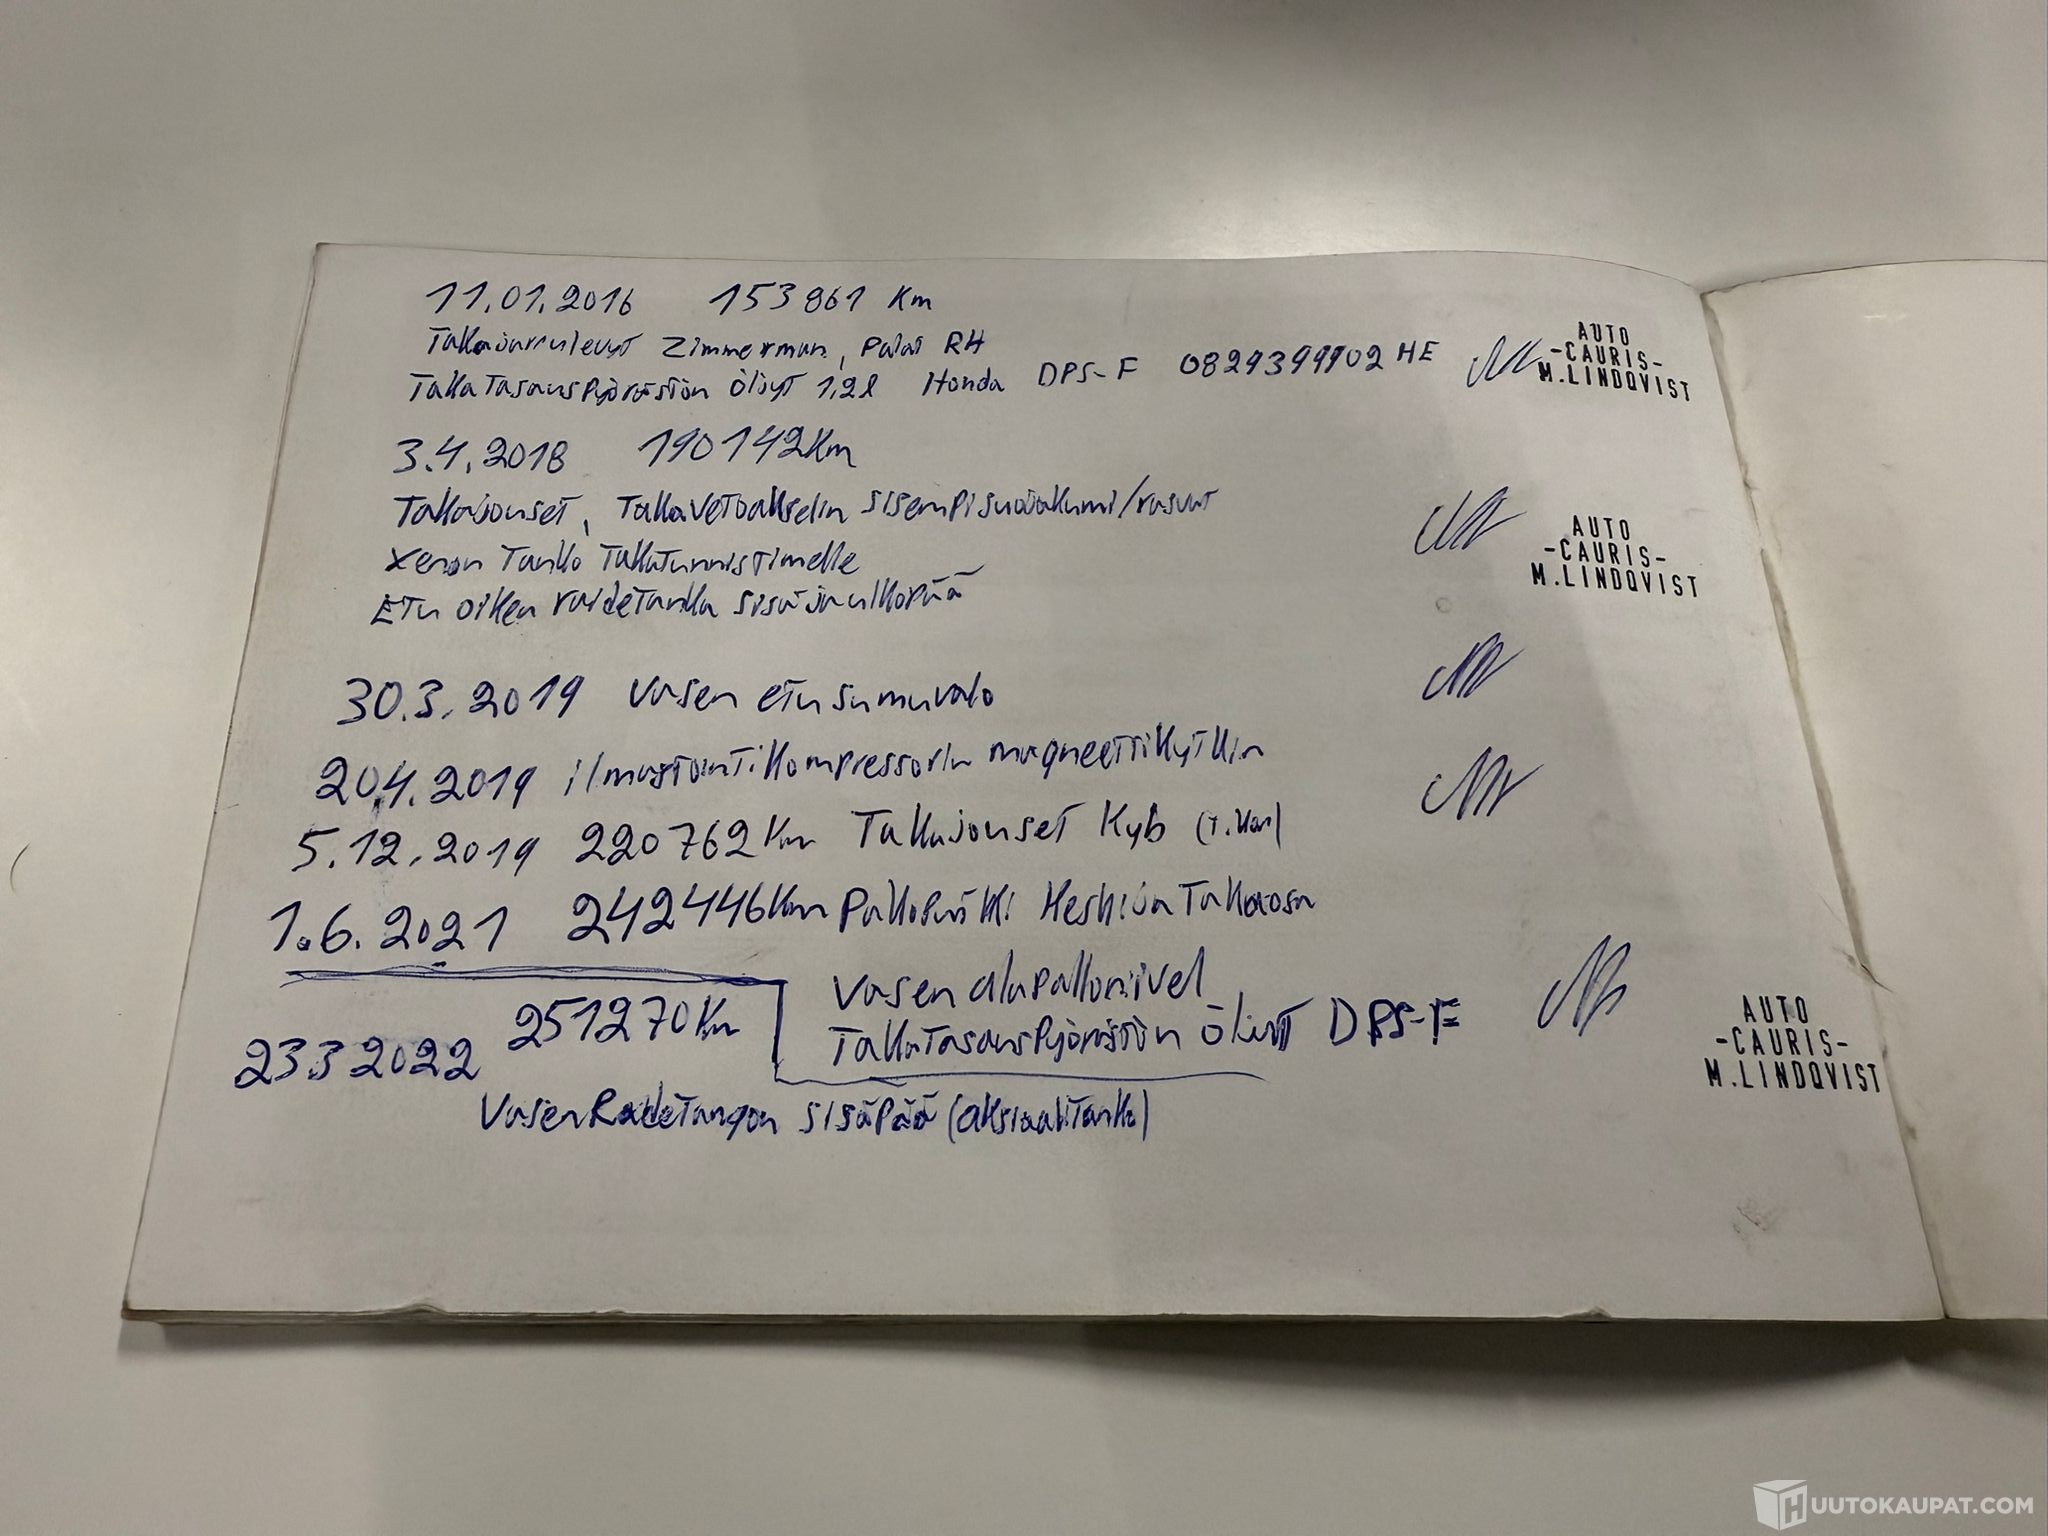 11.01.2016 153861 Km
Takajarrulevyt Zimmerman, Palat RH
Takatasauspyörästön Öljyt 1,2l Honda DPS-F 0829399902HE
AUTO
-CAURIS-
M.LINDQVIST
3.4.2018 190142Km
Takajouset, Takavetoakselin sisempi suojakumi/rasvat
Xenon Tanko Takatunnistimelle
Etu oikea raidetanko sisä ja ulkopää
AUTO
-CAURIS-
M.LINDQVIST
30.3.2019 Vasen etusumuvalo
20.4.2019 ilmastointikompressorin magneettikytkin
5.12.2019 220762Km Takajouset Kyb
1.6.2021 242446Km Pakoputki Keski ja Takaosa
Vasen alapallonivel
Takatasauspyörästön Öljyt DPS-F
23.3 2022 251270Km
Vasen Raidetangon sisäpää (aksiaalitanko)
AUTO
-CAURIS-
M.LINDQVIST
HUUTOKAUPAT.COM